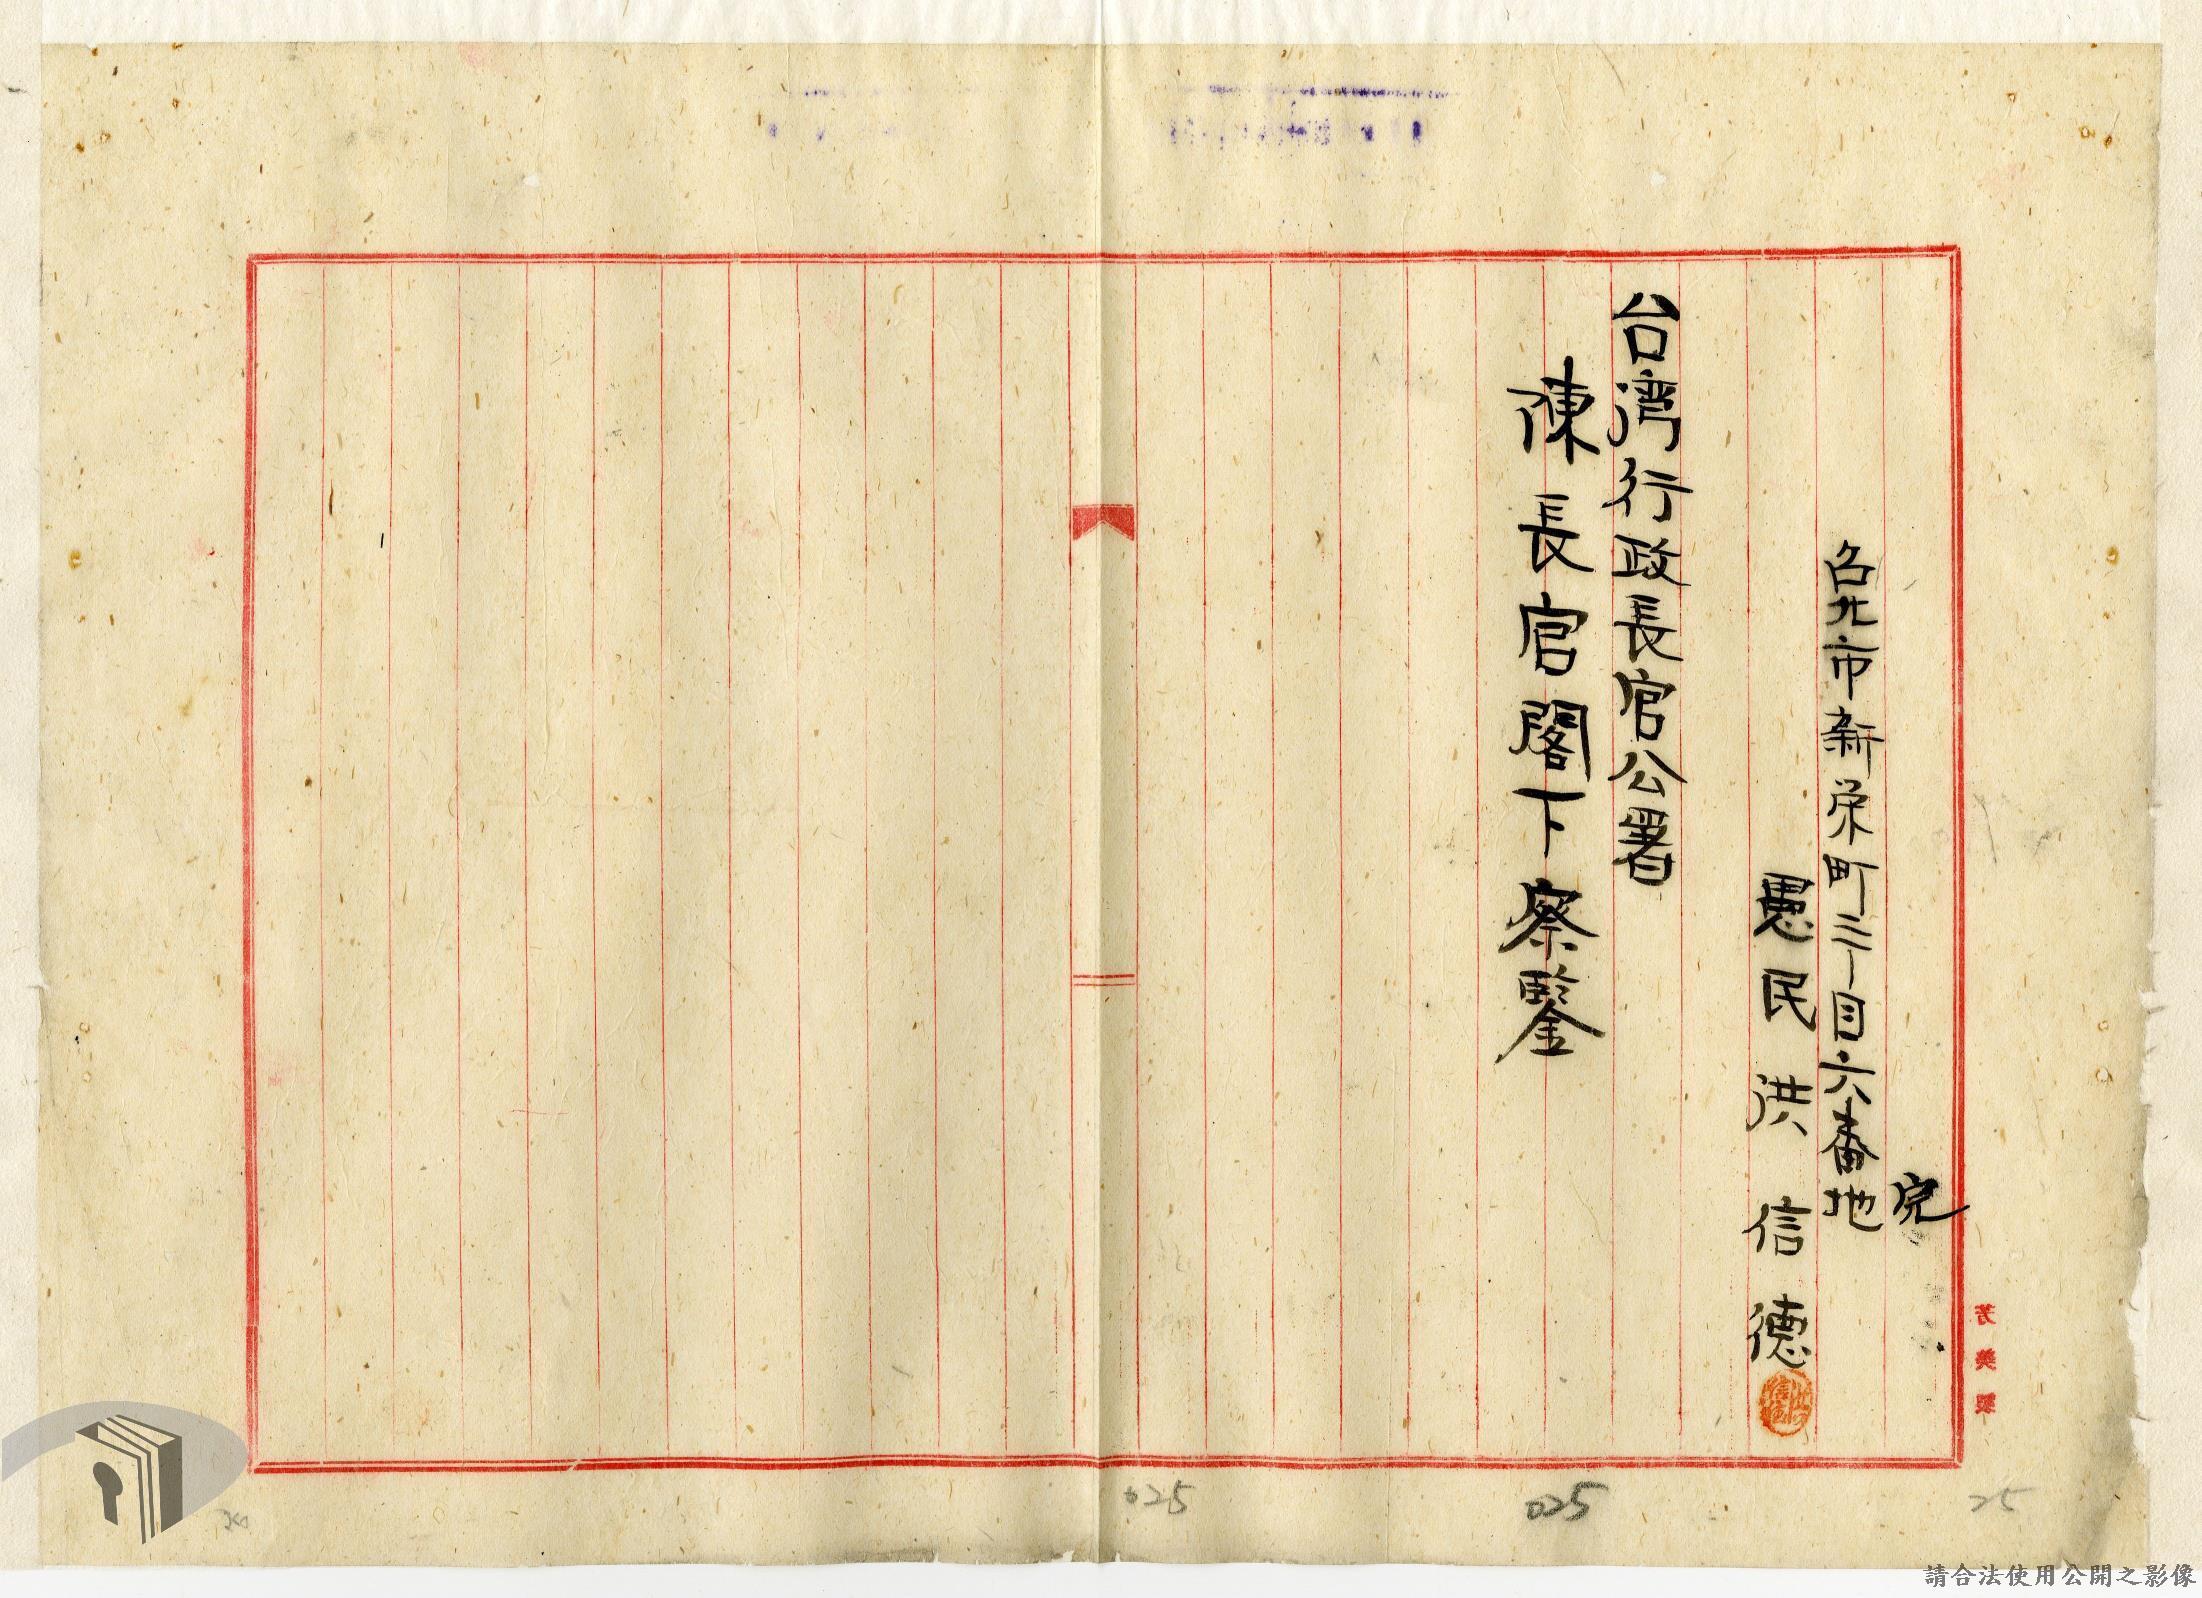 完
台北市新栄町三丁目六番地
愚民洪信德
台湾行政長官公署
陳長官閣下察鑒
芳美製
025
025
25
請合法使用公開之影像